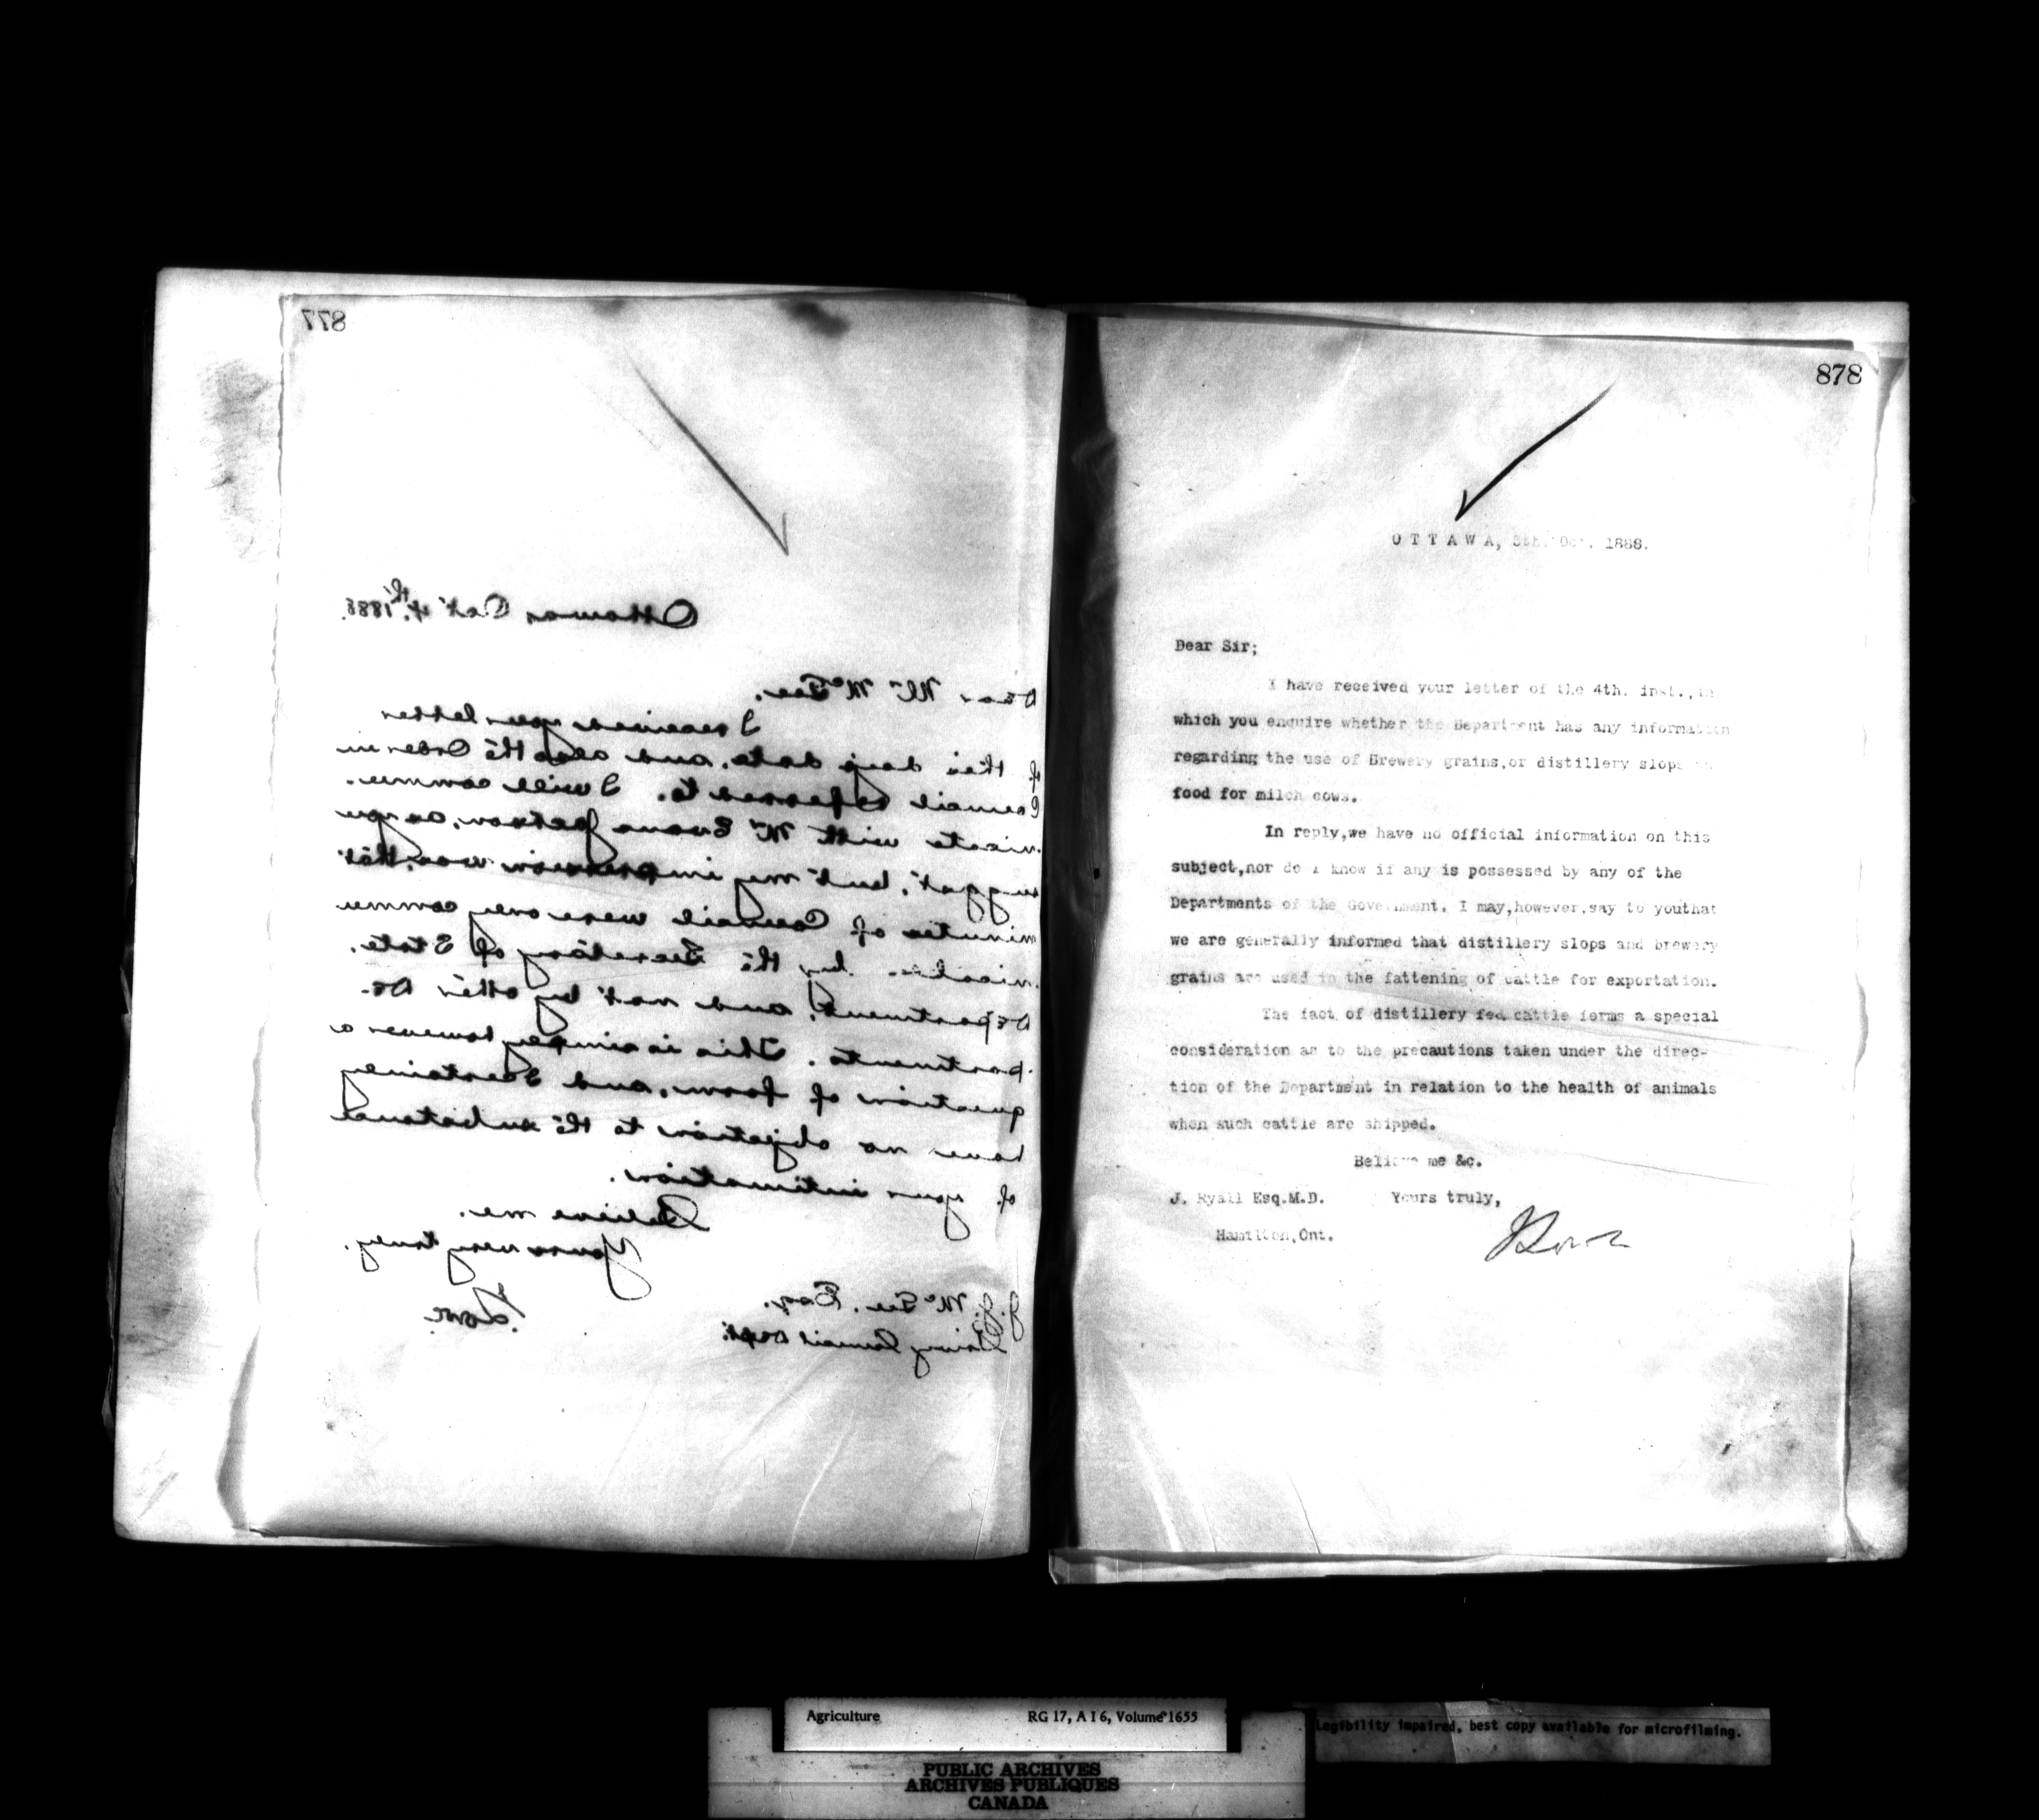 877
Ottawa, Oct 4th 1888.
Dear Mr McGee,
I received your letter
of this day's date, and also the Order in
Council referred to. I will commu-
nicate with Mr Evans Jackson, as you
suggest, but my impression was, that
minutes of Council were only commu
nicable by the Secretary of State,
Department, and not by other De-
partments. This is simply however a
question of form, and I certainly
have no objection to the substance
of your intimation.
Believe me,
Yours very truly,
J. Lowe
J. J. McGee, Esq.
Privy Council Dept.
878
OTTAWA, 5th. Oct. 1888.
Dear Sir;
I have received your letter of the 4th. inst., in
which you enquire whether the Department has any information
regarding the use of Brewery grains,or distillery slops
food for milch cows.
In reply,we have no official information on this
subject,nor do I know if any is possessed by any of the
Departments of the Government. I may,however,say to youthat
we are generally informed that distillery slops and brewery
grains are used in the fattening of cattle for exportation.
The fact of distillery fed cattle forms a special
consideration as to the precautions taken under the direc-
tion of the Department in relation to the health of animals
when such cattle are shipped.
Believe me &c.
J. Ryall Esq.M.D. Yours truly,
Hamilton,Ont.
J Lowe
Agriculture RG 17, A I 6, Volume 1655
Legibility impaired, best copy available for microfilming.
PUBLIC ARCHIVES
ARCHIVES PUBLIQUES
CANADA